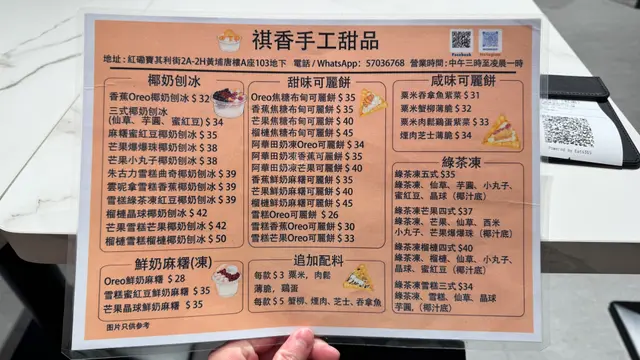 祺香手工甜品
Facebook
Instagram
地址：紅磡寶其利街2A-2H黃埔唐樓A座103地下 電話/WhatsApp：57036768 營業時間：中午三時至凌晨一時
椰奶刨冰
香蕉Oreo椰奶刨冰 $32
三式椰奶刨冰
(仙草、芋圓、蜜紅豆) $34
麻糬蜜紅豆椰奶刨冰 $35
芒果爆爆珠椰奶刨冰 $38
芒果小丸子椰奶刨冰 $38
朱古力雪糕曲奇椰奶刨冰 $39
雲呢拿雪糕香蕉椰奶刨冰 $39
雪糕綠茶凍紅豆椰奶刨冰 $39
榴槤晶球椰奶刨冰 $42
芒果雪糕芒果椰奶刨冰 $42
榴槤雪糕榴槤椰奶刨冰 $50
鮮奶麻糬(凍)
Oreo鮮奶麻糬 $28
雪糕蜜紅豆鮮奶麻糬 $35
芒果晶球鮮奶麻糬 $35
圖片只供參考
甜味可麗餅
Oreo焦糖布甸可麗餅 $30
香蕉焦糖布甸可麗餅 $35
芒果焦糖布甸可麗餅 $40
榴槤焦糖布甸可麗餅 $45
阿華田奶凍Oreo可麗餅 $34
阿華田奶凍香蕉可麗餅 $35
阿華田奶凍芒果可麗餅 $40
香蕉鮮奶麻糬可麗餅 $35
芒果鮮奶麻糬可麗餅 $40
榴槤鮮奶麻糬可麗餅 $45
雪糕Oreo可麗餅 $26
雪糕香蕉Oreo可麗餅 $30
雪糕芒果Oreo可麗餅 $33
追加配料
每款 $3 粟米，肉鬆
薄脆，雞蛋
每款 $5 蟹柳、煙肉、芝士、吞拿魚
咸味可麗餅
粟米吞拿魚紫菜 $31
粟米蟹柳薄脆 $32
粟米肉鬆雞蛋紫菜 $33
煙肉芝士薄脆 $34
綠茶凍
綠茶凍五式 $35
綠茶凍、仙草、芋圓、小丸子、
蜜紅豆、晶球（椰汁底）
綠茶凍芒果四式 $37
綠茶凍、芒果、仙草、西米
小丸子、芒果爆爆珠（椰汁底）
綠茶凍榴槤四式 $40
綠茶凍、榴槤、仙草、小丸子、
晶球、蜜紅豆（椰汁底）
綠茶凍雪糕三式 $34
綠茶凍、雪糕、仙草、晶球
芋圓，（椰汁底）